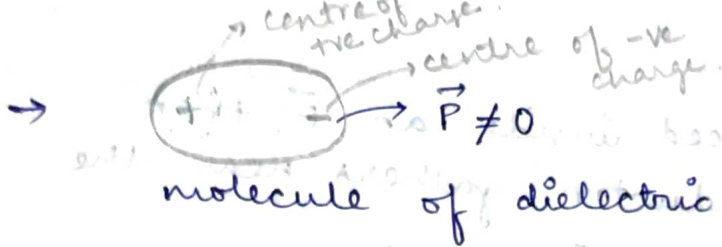 centre of
+ve charge.
centre of -ve
charge.
→ + - → P⃗ ≠ 0
molecule of dielectric